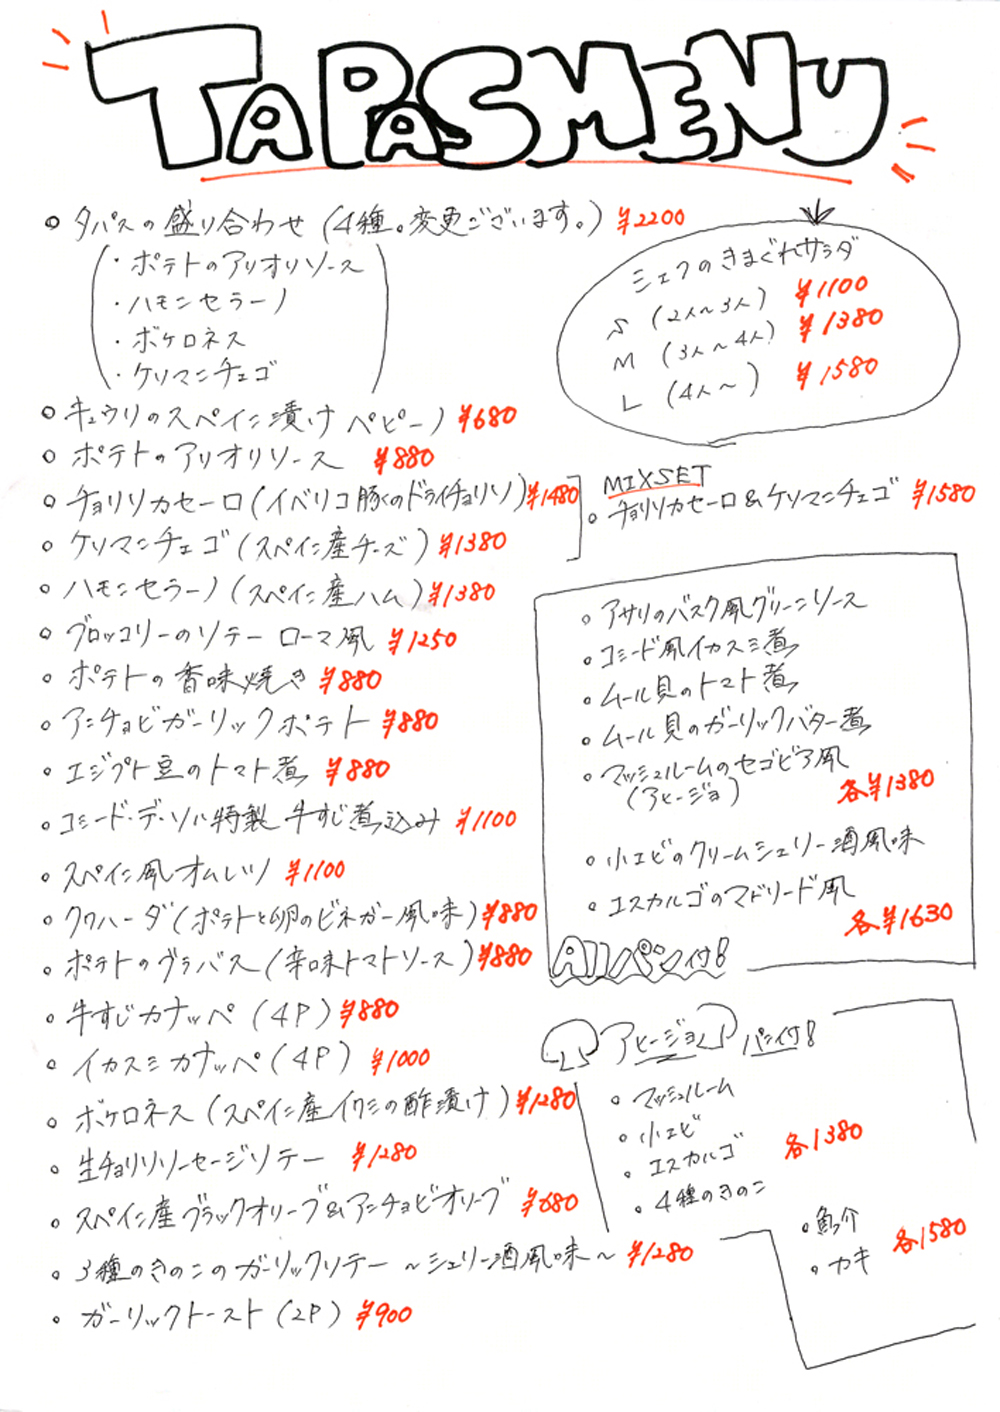 TAPAS MENU
○ タパスの盛り合わせ (4種。変更ございます。) ¥2200
・ポテトのアリオリソース
・ハモンセラーノ
・ボケロネス
・ケソマンチェゴ
シェフのきまぐれサラダ
S (2人〜3人) ¥1100
M (3人〜4人) ¥1380
L (4人〜) ¥1580
○ キュウリのスペイン漬け ペピーノ ¥680
○ ポテトのアリオリソース ¥880
○ チョリソカセーロ (イベリコ豚のドライチョリソ) ¥1480
○ ケソマンチェゴ (スペイン産チーズ) ¥1380
MIXSET
○ チョリソカセーロ & ケソマンチェゴ ¥1580
○ ハモンセラーノ (スペイン産ハム) ¥1380
○ ブロッコリーのソテー ローマ風 ¥1250
○ ポテトの香味焼き ¥880
○ アンチョビガーリックポテト ¥880
○ エジプト豆のトマト煮 ¥880
○ コミード・デ・ソル特製 牛すじ煮込み ¥1100
○ スペイン風オムレツ ¥1100
○ クワハーダ (ポテトと卵のビネガー風味) ¥880
○ ポテトのブラバス (辛味トマトソース) ¥880
○ 牛すじカナッペ (4P) ¥880
○ イカスミカナッペ (4P) ¥1000
○ ボケロネス (スペイン産イワシの酢漬け) ¥1280
○ 生チョリソソーセージソテー ¥1280
○ スペイン産ブラックオリーブ & アンチョビオリーブ ¥680
○ 3種のきのこのガーリックソテー 〜シェリー酒風味〜 ¥1280
○ ガーリックトースト (2P) ¥900
○ アサリのバスク風グリーンソース
○ コミード風イカスミ煮
○ ムール貝のトマト煮
○ ムール貝のガーリックバター煮
○ マッシュルームのセゴビア風
(アヒージョ) 各¥1380
○ 小エビのクリームシェリー酒風味
○ エスカルゴのマドリード風
各¥1630
Allパン付!
アヒージョ パン付!
○ マッシュルーム
○ 小エビ
○ エスカルゴ
○ 4種のきのこ
各1380
○ 魚介
○ カキ
各1580